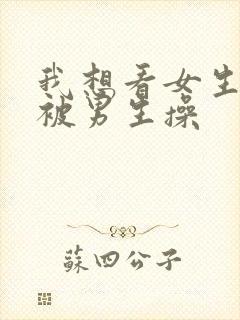 我想看女生
被男生操
蘇四公子